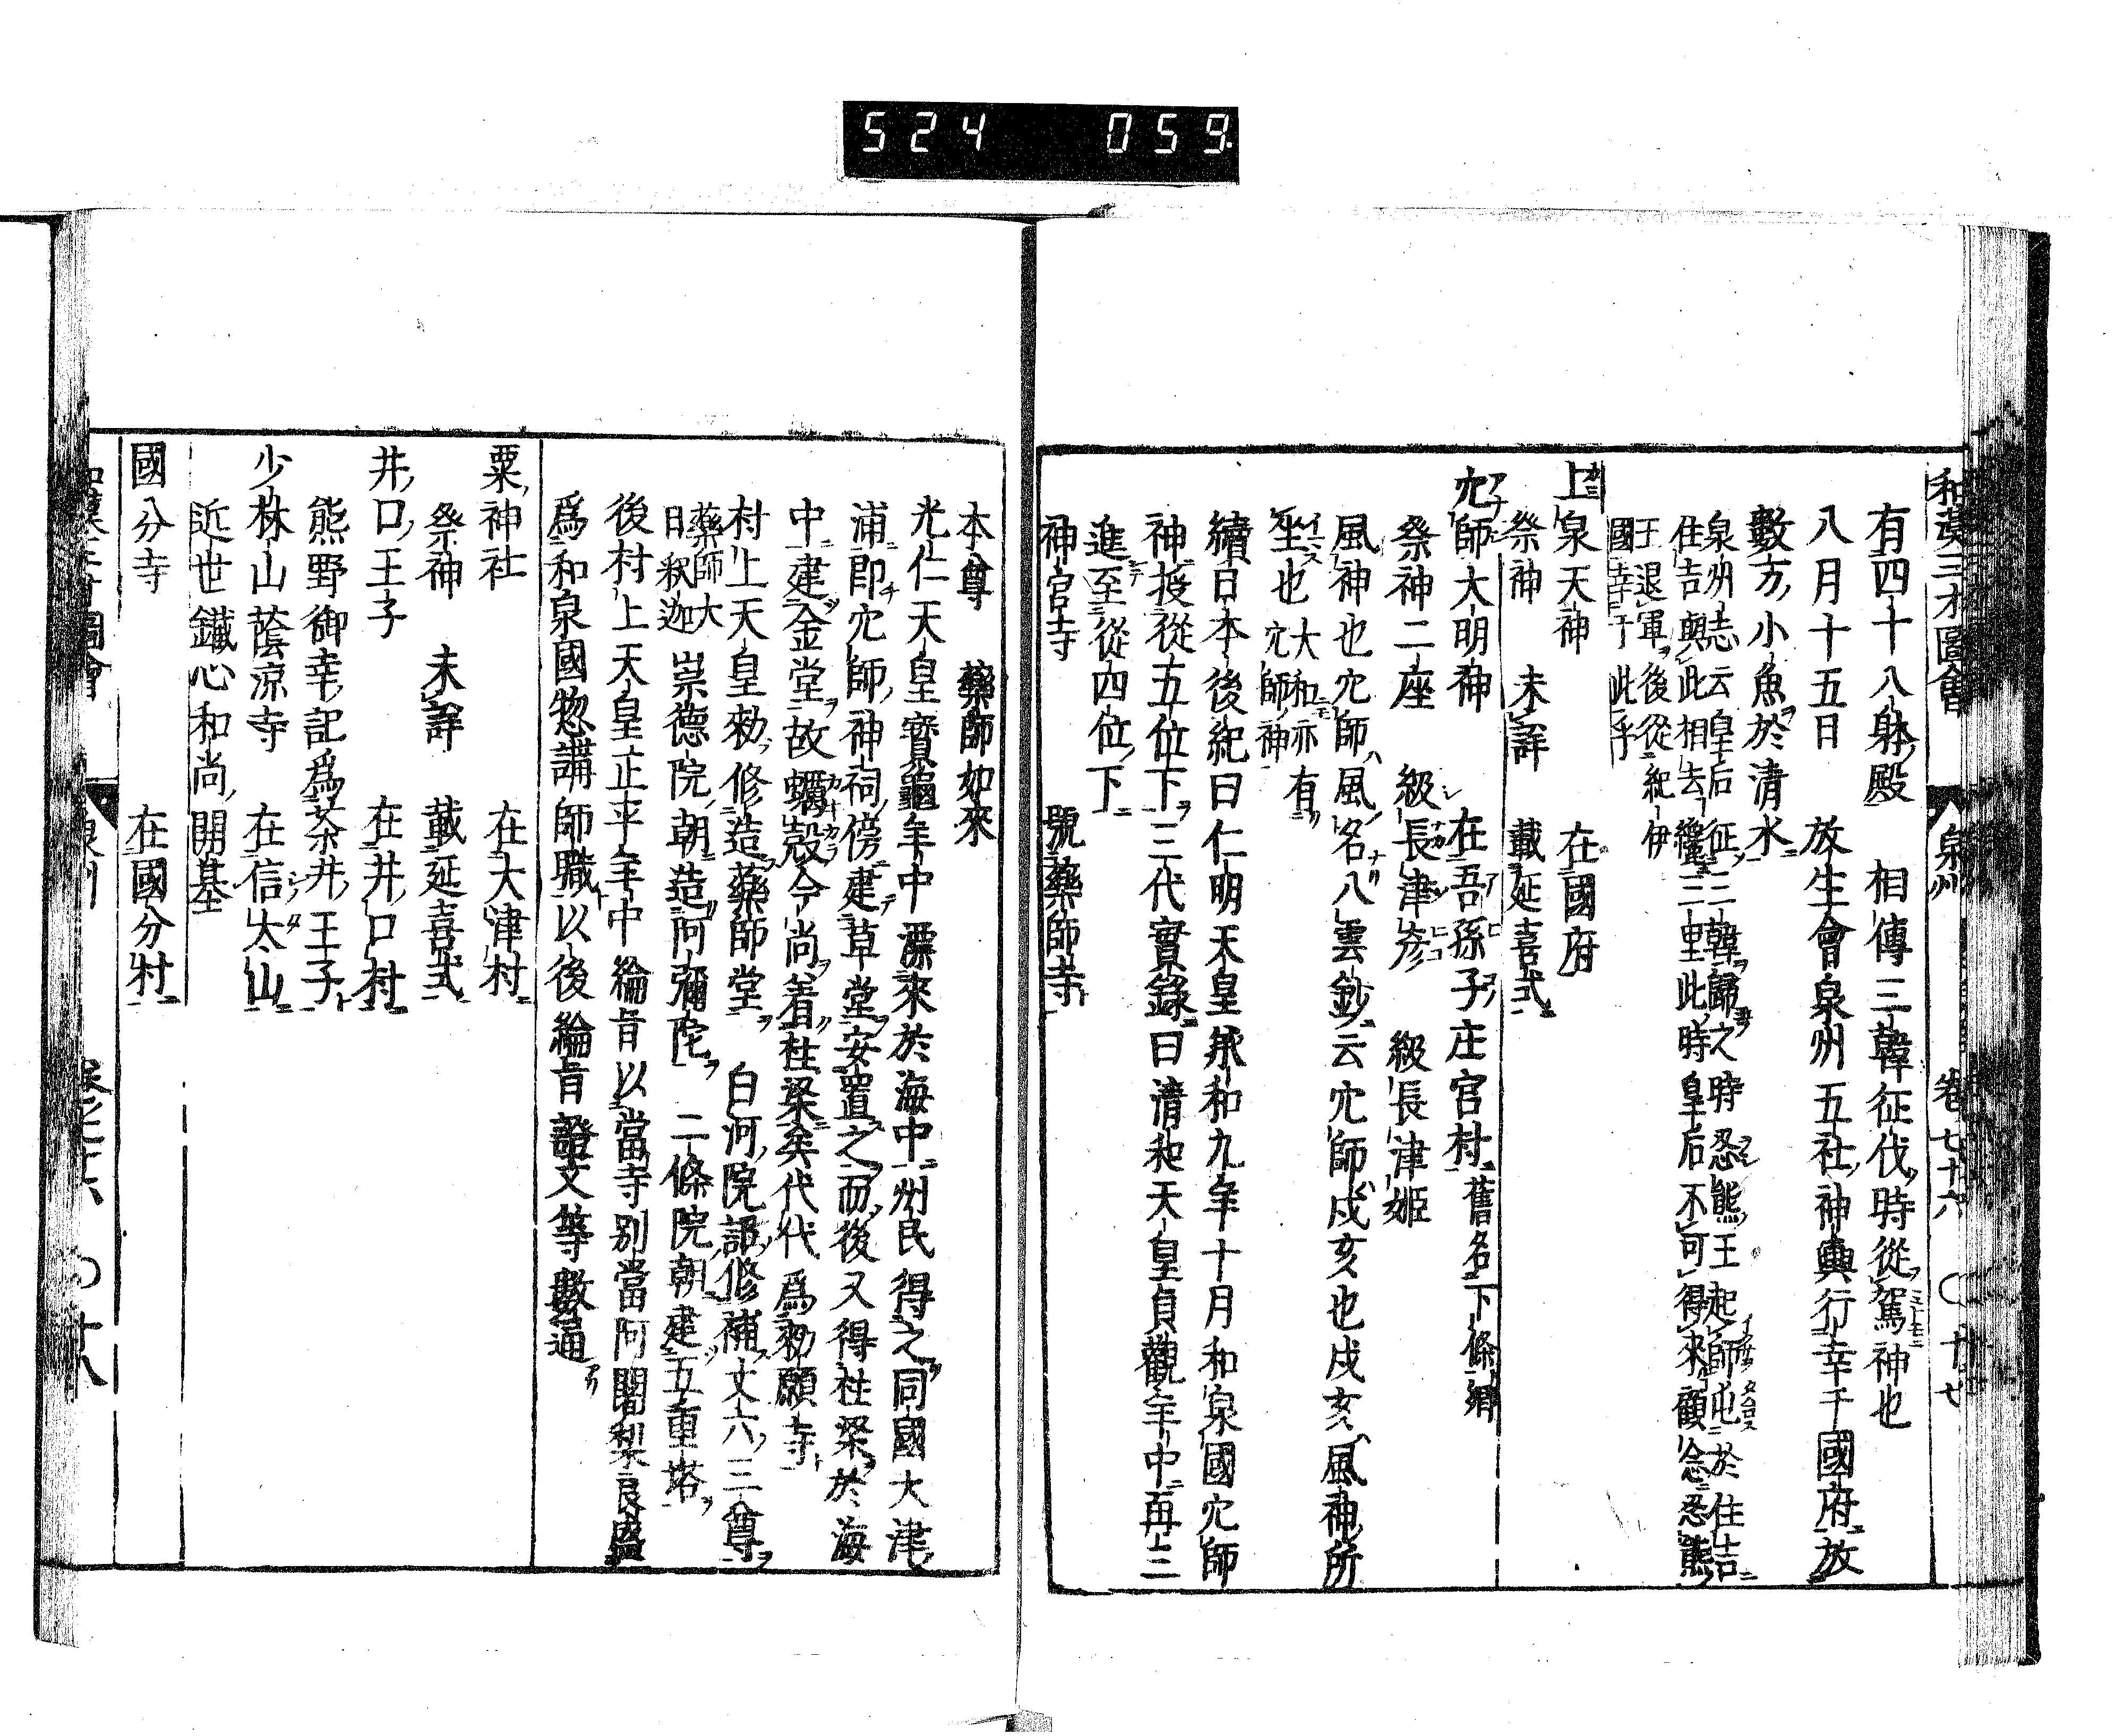 524 059
和漢三才圖會 泉州 卷七十六 〇十七
有四十八躰殿 相傳三韓征伐時從駕神也
八月十五日 放生會泉州五社神輿行幸于國府放
數万小魚於清水
泉州志云皇后征三韓歸之時忍熊王起師屯於住吉
住吉與此相去纔三里此時皇后不可得來顧念忍熊
王退軍後從紀伊
國幸于此乎
上泉天神 在國府
祭神 未詳 載延喜式
穴師大明神 在吾孫子庄官村舊名下條郷
祭神二座 級長津彦 級長津姬
風神也穴師風名八雲鈔云穴師戌亥也戌亥風神所
坐也 大和亦有
穴師神
續日本後紀曰仁明天皇承和九年十月和泉國穴師
神授從五位下三代實錄曰清和天皇貞觀年中再三
進至從四位下
神宮寺 號藥師寺
本尊 藥師如來
光仁天皇寶龜年中漂來於海中州民得之同國大津
浦卽穴師神祠傍建草堂安置之而後又得柱梁於海
中建金堂故蠣殼今尚着柱梁矣代代爲勅願寺
村上天皇勅修造藥師堂 白河院詔修補丈六三尊
藥師大
日釈迦 崇德院朝造阿彌陀 二條院朝建五重塔
後村上天皇正平年中綸旨以當寺別當阿闍梨良盛
爲和泉國惣講師職以後綸旨證文等數通
粟神社 在大津村
祭神 未詳 載延喜式
井口王子 在井口村
熊野御幸記爲茶井王子
少林山蔭凉寺 在信太山
近世鐵心和尚開基
國分寺 在國分村